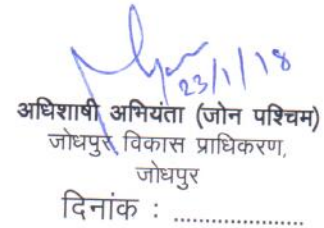 23/1/18
अधिशाषी अभियंता (जोन पश्चिम)
जोधपुर विकास प्राधिकरण,
जोधपुर
दिनांक : ....................